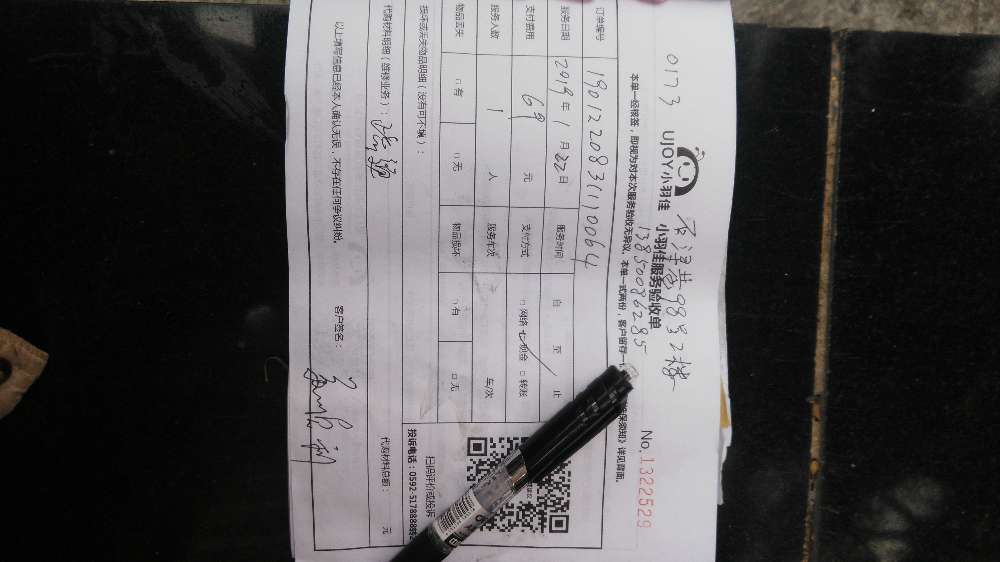 0173
UJOY小羽佳
小羽佳服务验收单
13850086285
No.1322529
本单一经核签，即视为对本次服务验收无异议，本单一式两份，客户留存一
详见背面。
订单编号 190122083110064
服务日期 2019年1月22日 服务时间 自 至 止
支付费用 69 元 支付方式 □网络 现金 □转账
服务人数 1 人 服务车次 车/次
物品丢失 □有 □无 物品损坏 □有 □无
损坏或丢失物品明细（没有可不填）：
扫码评价或投诉
投诉电话：0592-5178888转2
代购材料明细（维修业务）： 代购材料总额： 元
以上填写信息已经本人确认无误，不存在任何争议纠纷。 客户签名：